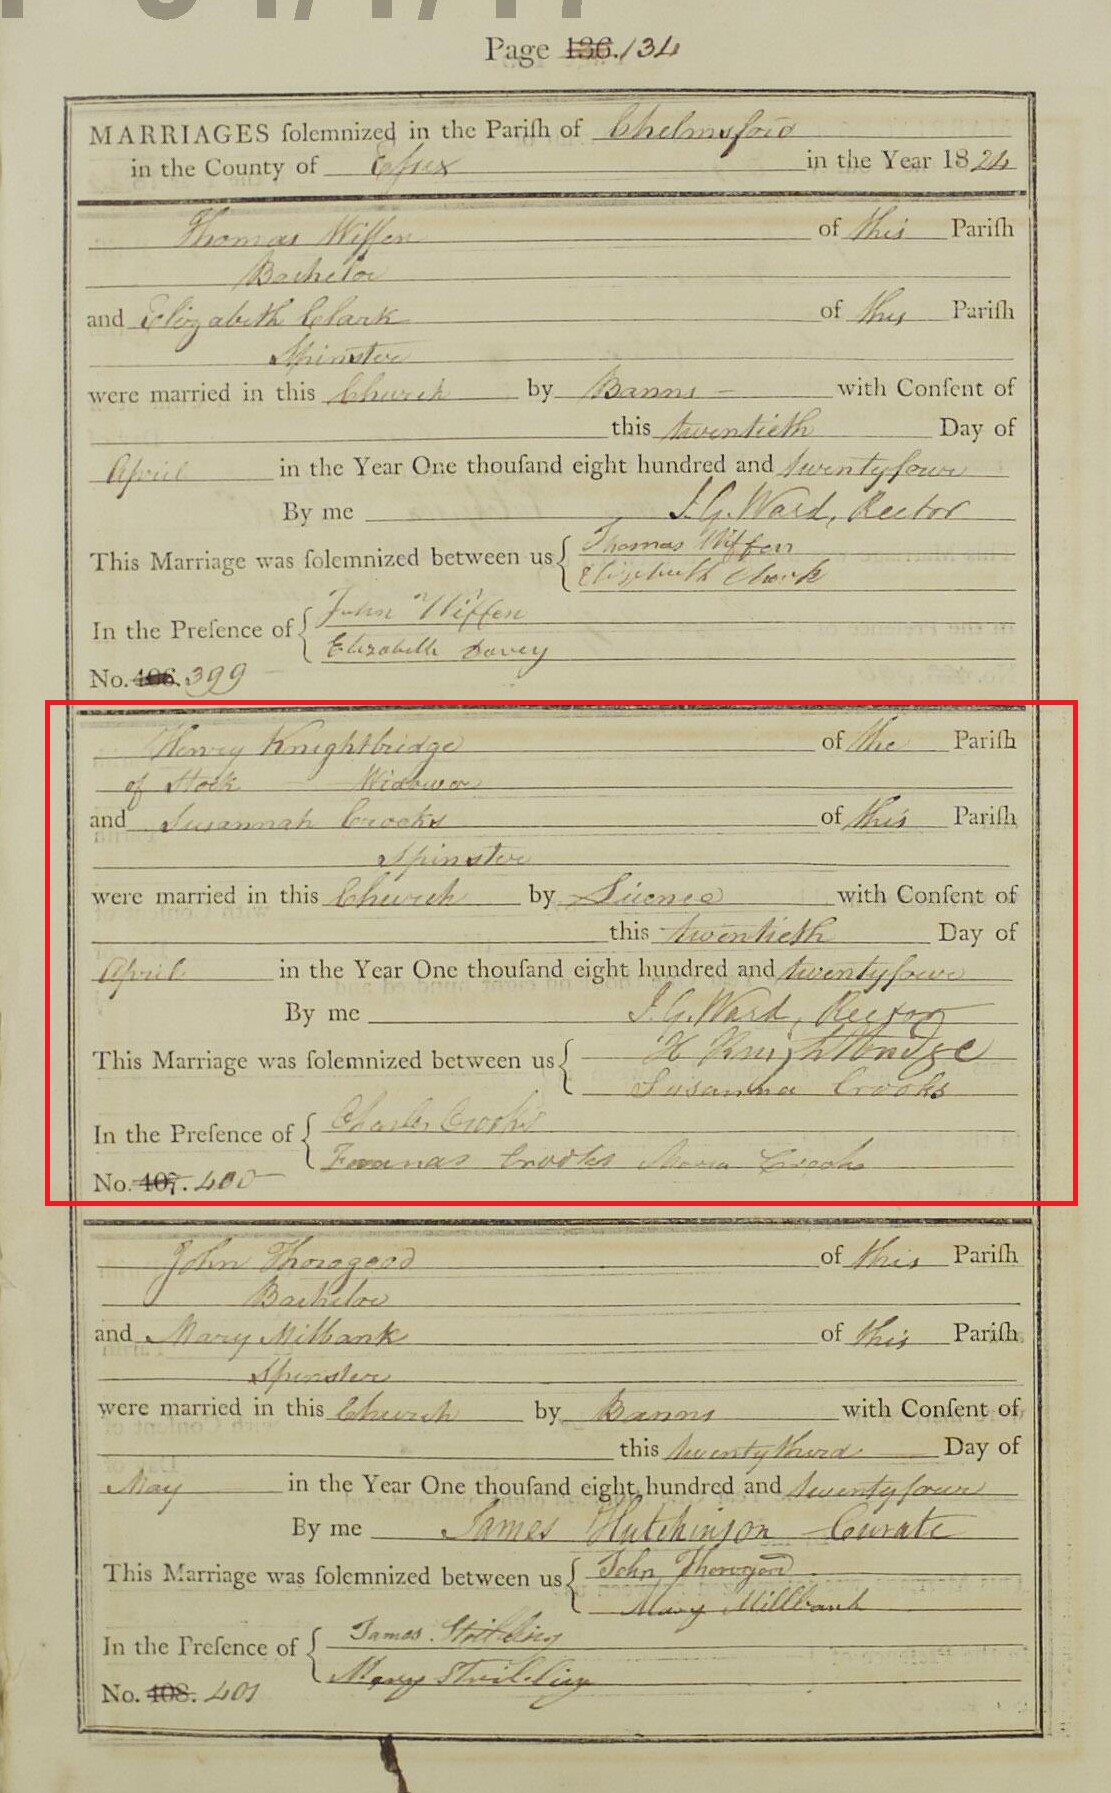 Page 136. 134
MARRIAGES ſolemnized in the Pariſh of Chelmsford
in the County of Eſsex in the Year 1824
Thomas Wiffen of this Pariſh
Bachelor
and Elizabeth Clark of this Pariſh
Spinster
were married in this Church by Banns — with Conſent of
this twentieth Day of
April in the Year One thouſand eight hundred and twentyfour
By me J. G. Ward, Rector
This Marriage was ſolemnized between us { Thomas Wiffen
Elizebeth Clark
In the Preſence of { John Wiffen
Elizabeth Davey
No. 406. 399
Henry Knightbridge of the Pariſh
of Stock Widower
and Susannah Crooks of this Pariſh
Spinster
were married in this Church by Licence with Conſent of
this twentieth Day of
April in the Year One thouſand eight hundred and twentyfour
By me J. G. Ward, Rector
This Marriage was ſolemnized between us { H Knightbridge
Susanna Crooks
In the Preſence of { Charles Crooks
Crooks Maria Crooks
No. 407. 400
John Thorogood of this Pariſh
Bachelor
and Mary Milbank of this Pariſh
Spinster
were married in this Church by Banns with Conſent of
this twentythird Day of
May in the Year One thouſand eight hundred and twentyfour
By me James Hutchinson Curate
This Marriage was ſolemnized between us { John Thorogood
Mary Millbank
In the Preſence of { James Stribling
Mary Stribling
No. 408. 401